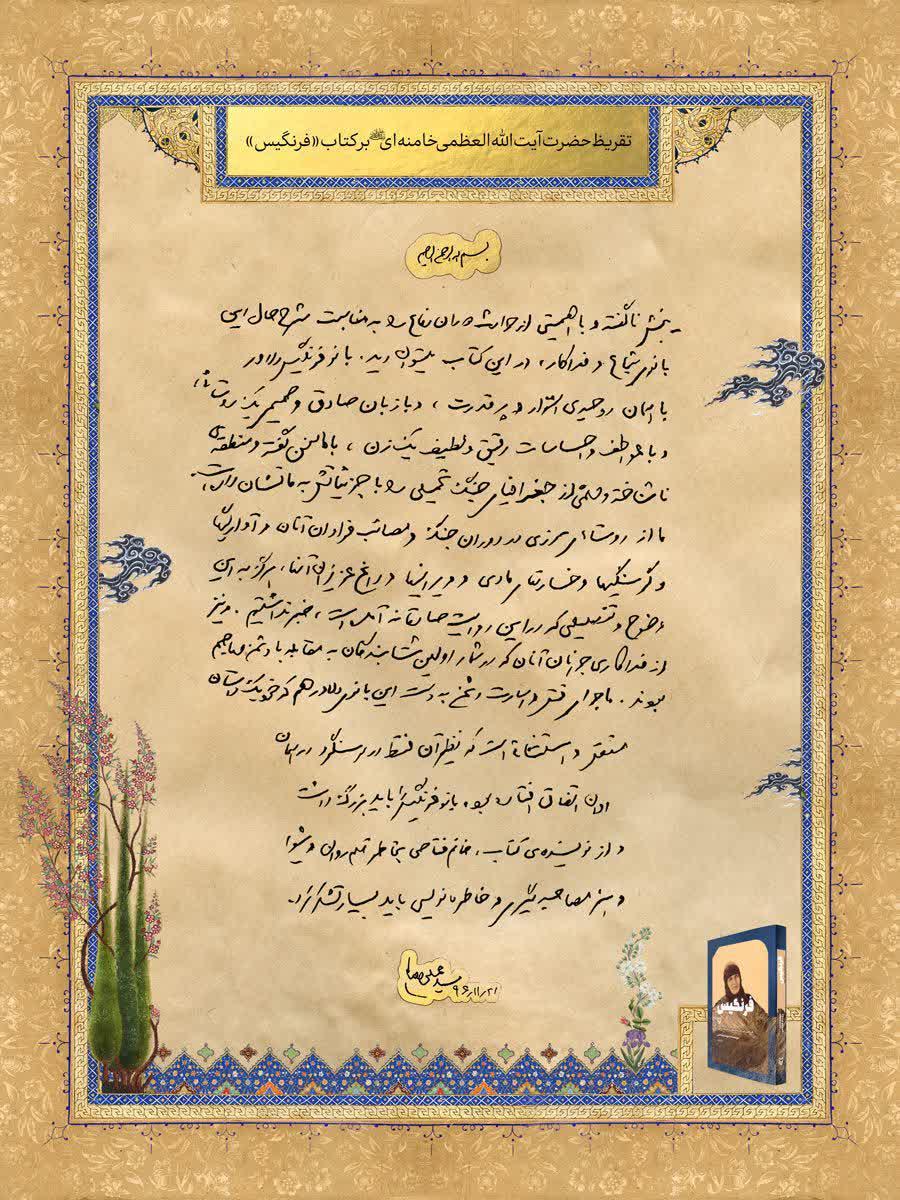 تقریظ حضرت آیت الله العظمی خامنه ای بر کتاب «فرنگیس»
بسم الله الرحمن الرحیم
بخش ناگفته و با اهمیتی از حوادث دوران دفاع را به مناسبت شرح حال این
بانوی شجاع و فداکار، در این کتاب میتوان دید. بانو فرنگیس دلاور
با همان روحیه‌ی استوار و پر قدرت، و با زبان صادق و صمیمی یک روستائی،
و با عواطف و احساسات رقیق و لطیف یک زن، با ما سخن گفته و منطقه‌ی
ناشناخته و مهمی از جغرافیای جنگ تحمیلی را با جزئیاتش به ما نشان داده است.
ما از روستاهای مرزی در دوران جنگ و مصائب فراوان آنان و آوارگیها
و گرسنگیها و خسارتهای مادی و ویرانیها و داغ عزیزان آنها، هرگز به این
وضوح و تفصیلی که در این روایت صادقانه آمده است، خبر نداشتیم. و نیز
از فداکاری جوانان آنان که در شمار اولین شتابندگان به مقابله با دشمن مهاجم
بودند. ماجرای قتل و اسارت دشمن به دست این بانوی دلاور هم که خود یک داستان
مستقل و استثنائی است که نظیر آن فقط در سوسنگرد در همان
اوان اتفاق افتاده بود. بانو فرنگیس را باید بزرگ داشت
و از نویسنده‌ی کتاب، خانم فتاحی بخاطر قلم روان و شیوا
و هنر مصاحبه‌گیری و خاطره‌نویسی باید بسیار تشکر کرد.
سید علی خامنه‌ای
۹۶/۱۱/۲۱
فرنگیس